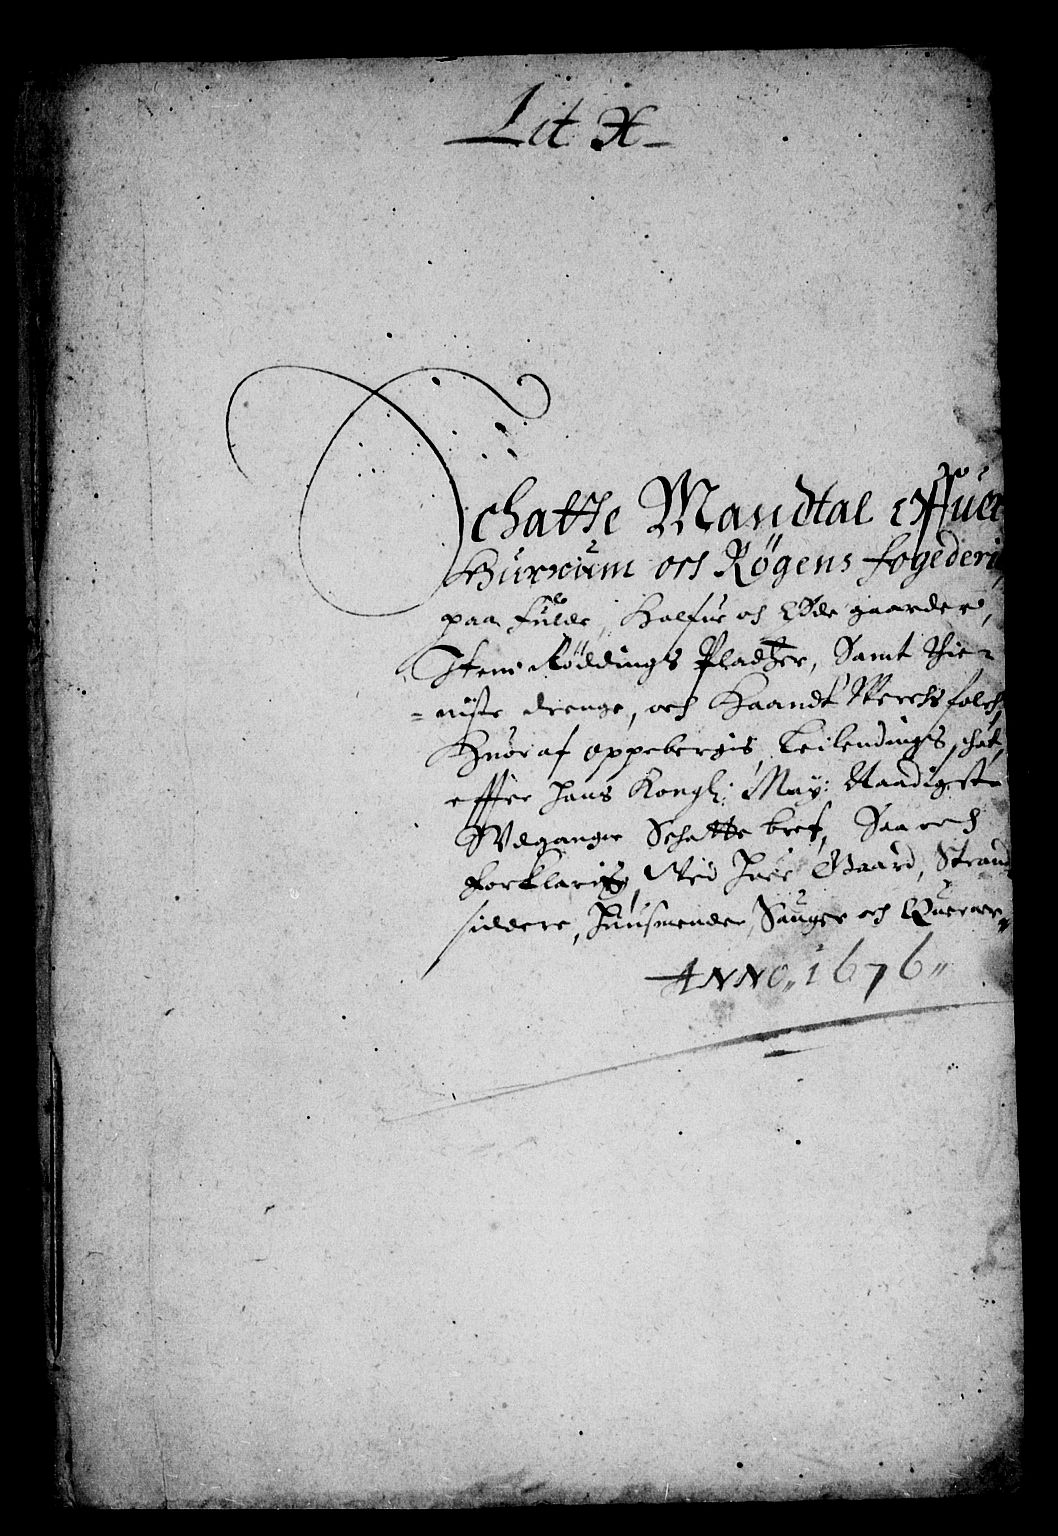 Lit X
Schatte Mandtal offuer
Burxum och Røgens fogederi,
paa fulde, Halfue och Øde gaarder,
Item Røddings Pladtzer, Samt thie-
=niste drenge, och Haandt Werchs folch,
Huor af oppebergis Leilendings schat,
effter Hans Kongl: May: Naadigste
Udgangne Schatte bref, Saa och
forklaring, Ved huer Gaard, Strand
siddere, Huusmender, Sauger och Querner„
ANNO„ 1676„